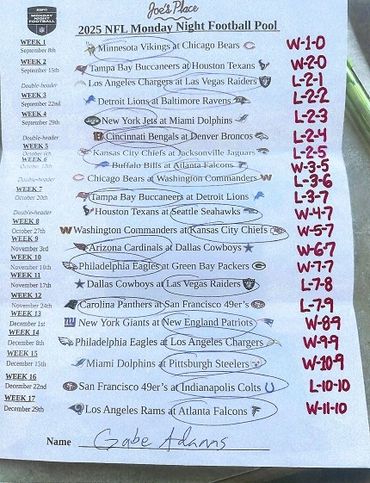 Joe's Place
2025 NFL Monday Night Football Pool
WEEK 1
September 8th Minnesota Vikings at Chicago Bears W-1-0
WEEK 2
September 15th Tampa Bay Buccaneers at Houston Texans W-2-0
Double-header Los Angeles Chargers at Las Vegas Raiders L-2-1
WEEK 3
September 22nd Detroit Lions at Baltimore Ravens L-2-2
WEEK 4
September 29th New York Jets at Miami Dolphins L-2-3
Double-header Cincinnati Bengals at Denver Broncos L-2-4
WEEK 5
October 6th Kansas City Chiefs at Jacksonville Jaguars L-2-5
WEEK 6
October 13th Buffalo Bills at Atlanta Falcons W-3-5
Double-header Chicago Bears at Washington Commanders L-3-6
WEEK 7
October 20th Tampa Bay Buccaneers at Detroit Lions L-3-7
Double-header Houston Texans at Seattle Seahawks W-4-7
WEEK 8
October 27th Washington Commanders at Kansas City Chiefs W-5-7
WEEK 9
November 3rd Arizona Cardinals at Dallas Cowboys W-6-7
WEEK 10
November 10th Philadelphia Eagles at Green Bay Packers W-7-7
WEEK 11
November 17th Dallas Cowboys at Las Vegas Raiders L-7-8
WEEK 12
November 24th Carolina Panthers at San Francisco 49er's L-7-9
WEEK 13
December 1st New York Giants at New England Patriots W-8-9
WEEK 14
December 8th Philadelphia Eagles at Los Angeles Chargers W-9-9
WEEK 15
December 15th Miami Dolphins at Pittsburgh Steelers W-10-9
WEEK 16
December 22nd San Francisco 49er's at Indianapolis Colts L-10-10
WEEK 17
December 29th Los Angeles Rams at Atlanta Falcons W-11-10
Name Gabe Adams